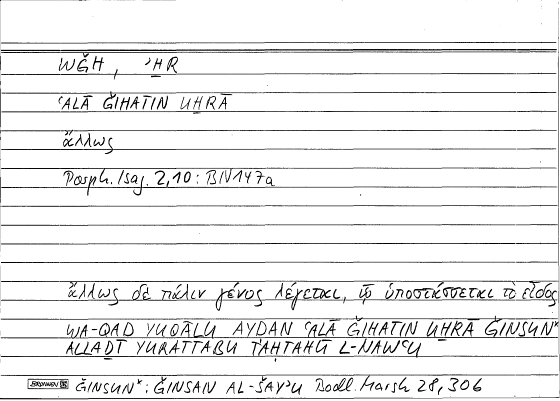 WĞH, ʾḪR
ʿALĀ ĞIHATIN UḪRĀ
ἄλλως
Porph. Isag. 2,10: BN147a
ἄλλως δὲ πάλιν γένος λέγεται, ᾧ ὑποτάσσεται τὸ εἶδος
WA-QAD YUQĀLU AYḌAN ʿALĀ ĞIHATIN UḪRĀ ĞINSUN*
ALLAḎĪ YURATTABU TAḤTAHŪ L-NAWʿU
ĞINSUN*: ĞINSAN AL-ŠAYʾU Bodl. Marsh 28, 306